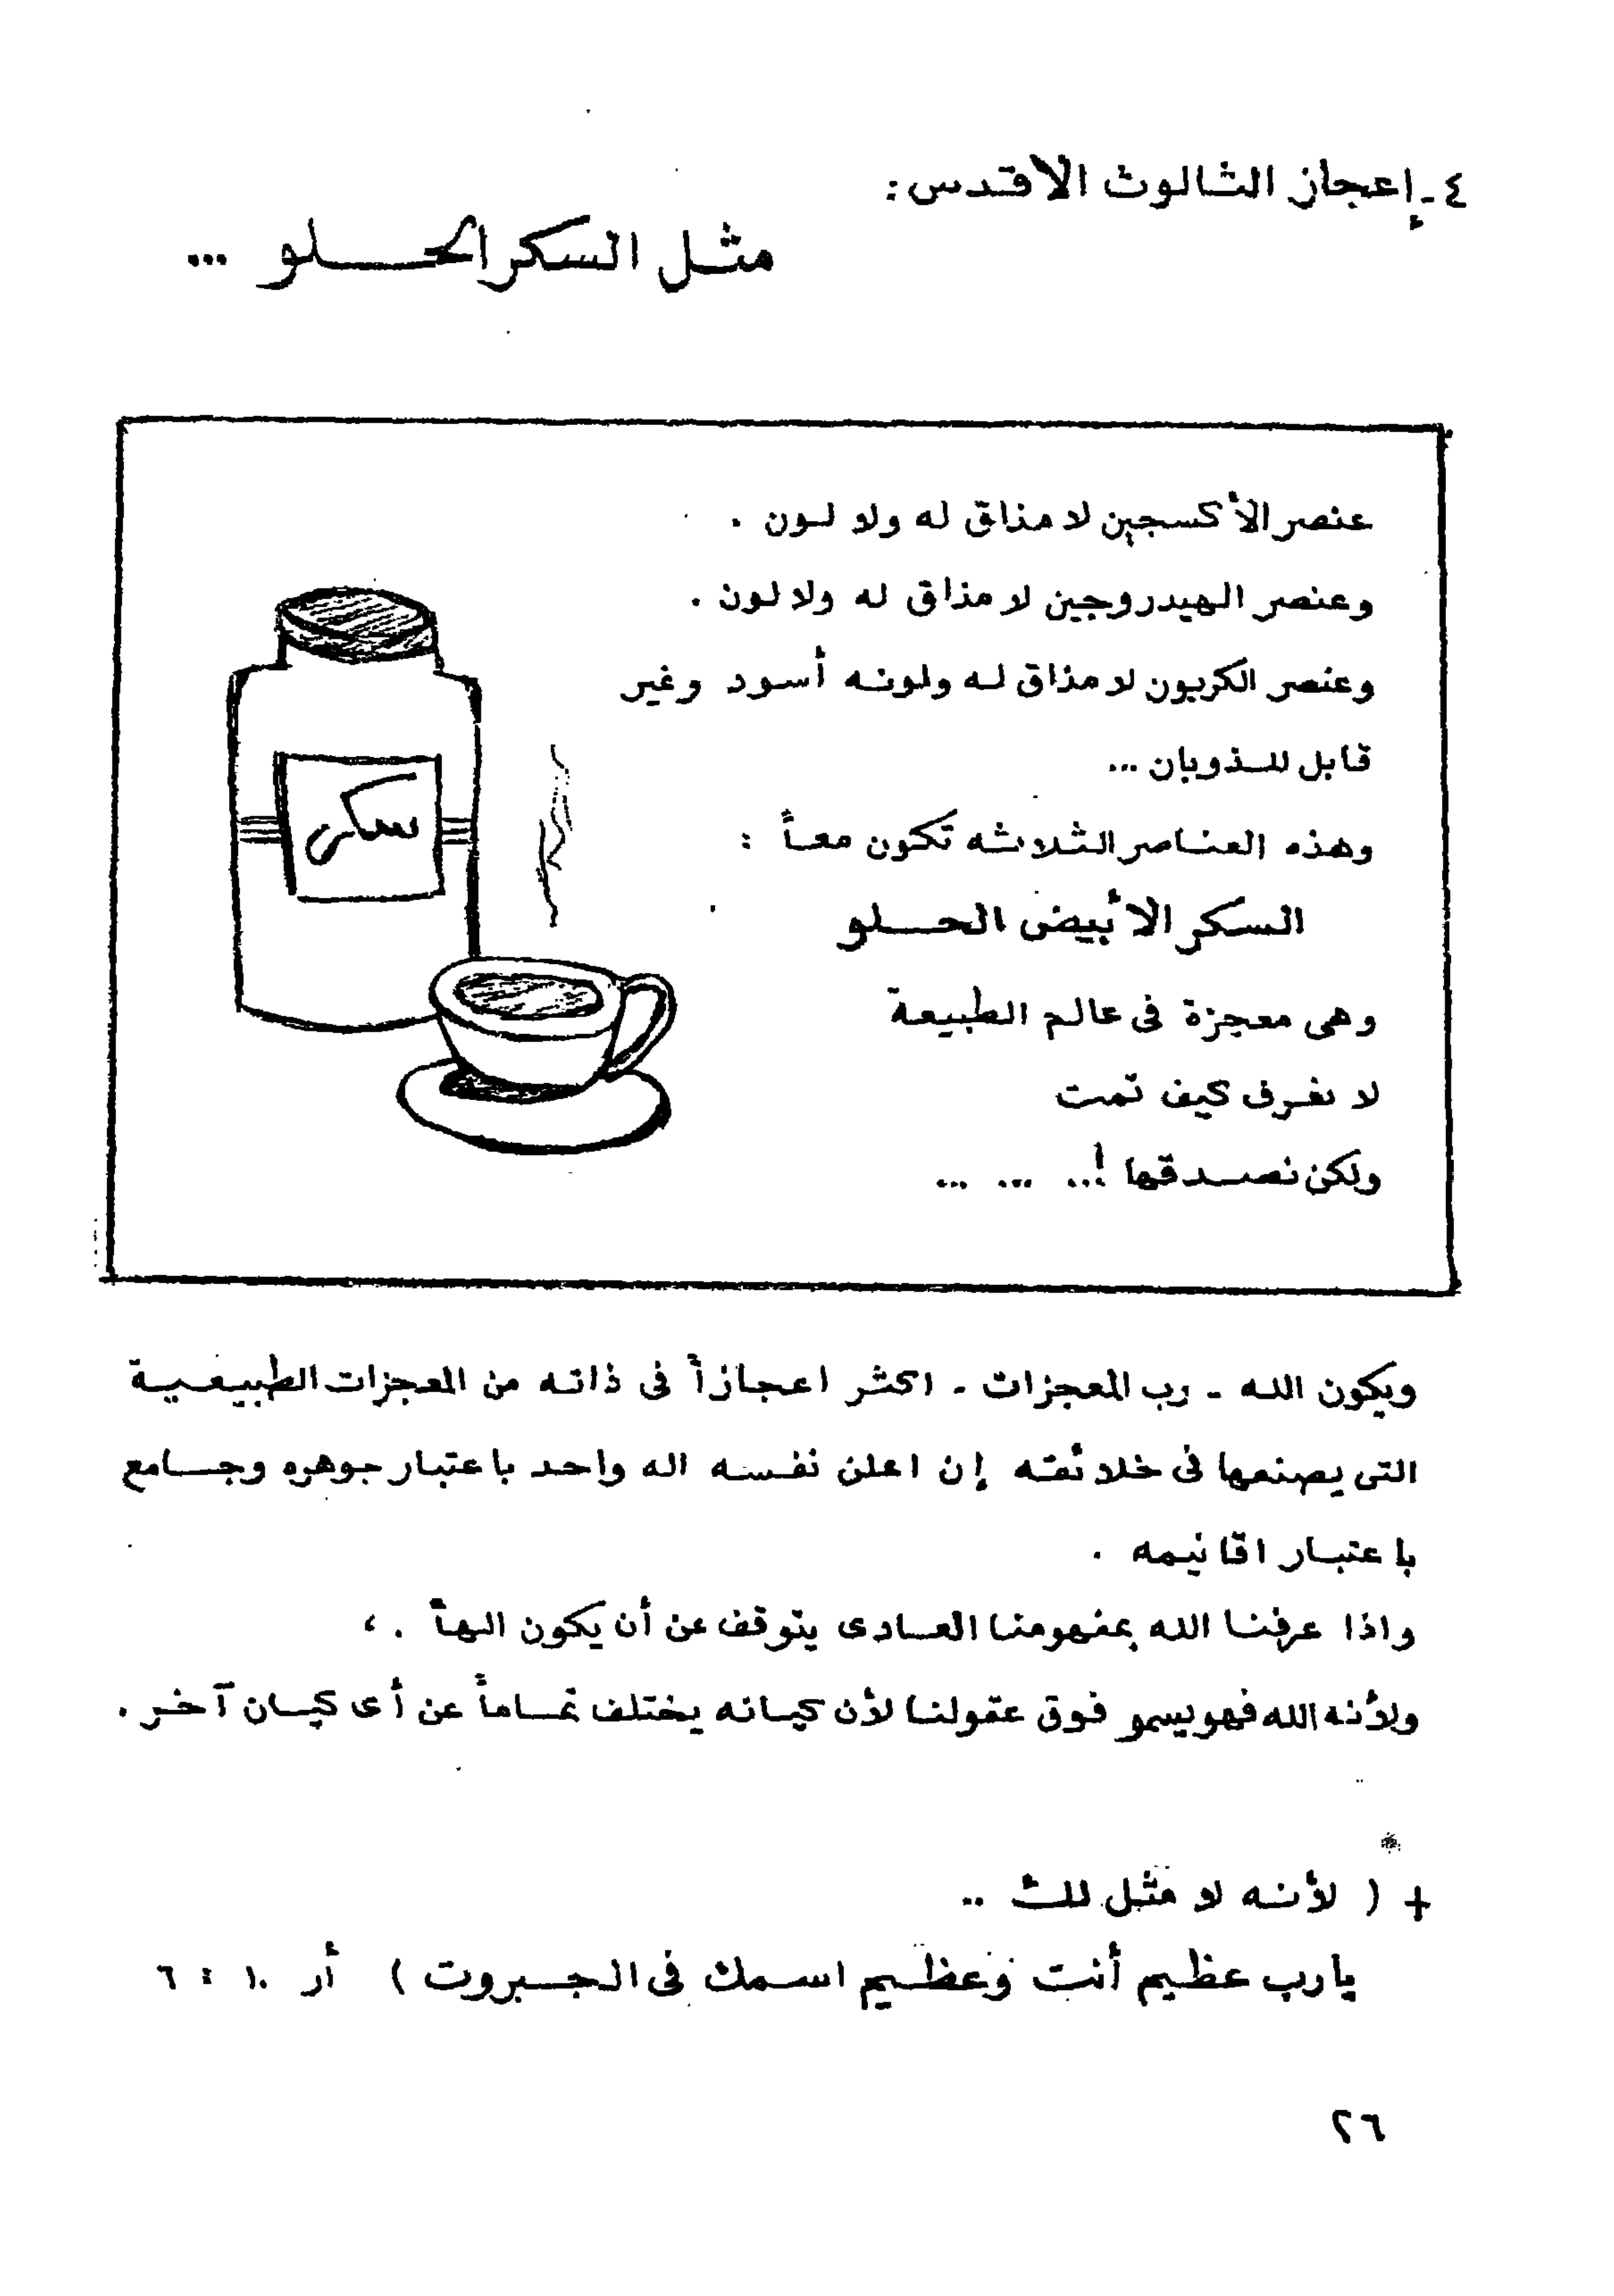 ٤ـ إعجاز الثالوث الاقدس:
مثل السكر الحلو ...
عنصر الأكسجين لا مذاق له ولا لون .
وعنصر الهيدروجين لا مذاق له ولا لون .
وعنصر الكربون لا مذاق له ولونه أسود وغير
قابل للذوبان ...
وهذه العناصر الثلاثه تكون معاً :
السكر الأبيض الحلو
وهى معجزة فى عالم الطبيعة
لا نعرف كيف تمت
ولكن نصدقها !.. ... ...
سكر
ويكون الله ـ رب المعجزات ـ اكثر اعجازاً فى ذاته من المعجزات الطبيعية
التى يصنعها فى خلائقه إن اعلن نفسه اله واحد باعتبار جوهره وجامع
باعتبار اقانيمه .
واذا عرفنا الله بمفهومنا العادى يتوقف عن أن يكون الهاً . ،
ولأنه الله فهو يسمو فوق عقولنا لأن كيانه يختلف تماماً عن أى كيان آخر .
+ ( لأنه لا مثل لك ..
يارب عظيم أنت وعظيم اسمك فى الجبروت ) أر ١٠ : ٦
٢٦